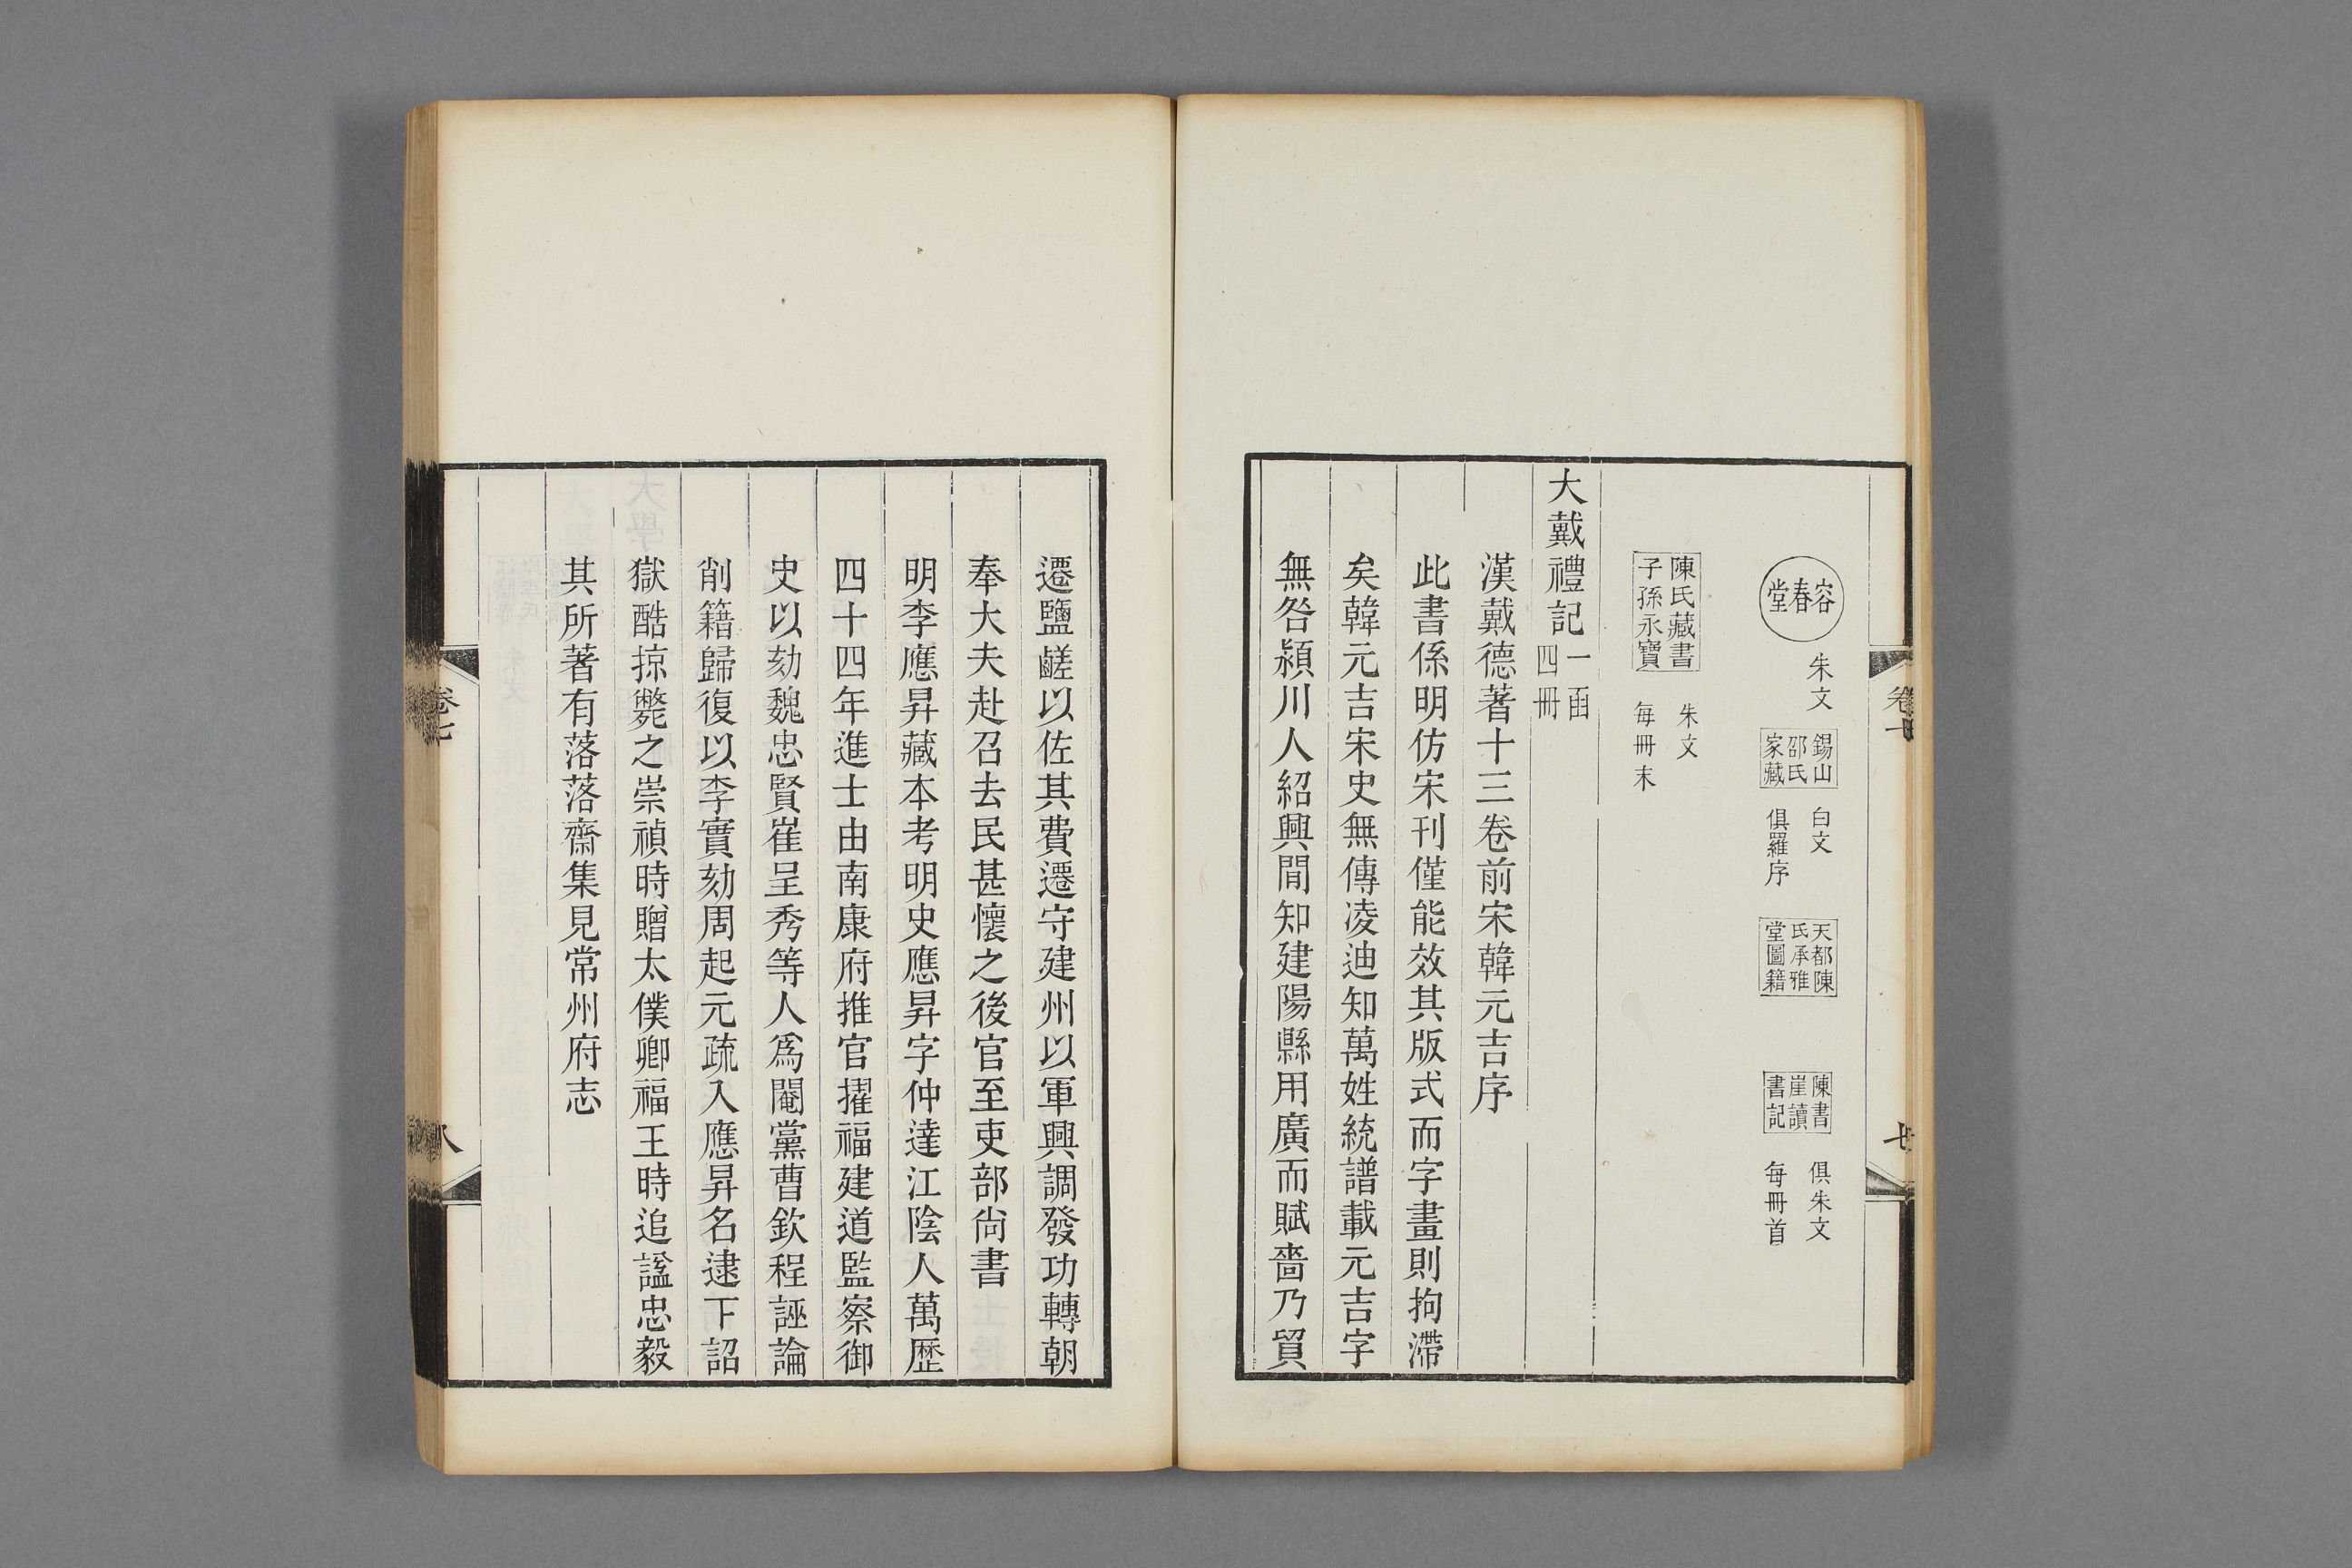 容春堂
朱文
錫山
邵氏
家藏
白文
俱羅序
天都陳
氏承雅
堂圖籍
陳書
崖讀
書記
俱朱文
每冊首
陳氏藏書
子孫永寶
朱文
每冊末
大戴禮記一函四冊
漢戴德著十三卷前宋韓元吉序
此書係明仿宋刊僅能效其版式而字畫則拘滯
矣韓元吉宋史無傳凌迪知萬姓統譜載元吉字
無咎潁川人紹興間知建陽縣用廣而賦嗇乃貿
遷鹽鹺以佐其費遷守建州以軍興調發功轉朝
奉大夫赴召去民甚懷之後官至吏部尙書
明李應昇藏本考明史應昇字仲達江陰人萬歷
四十四年進士由南康府推官擢福建道監察御
史以劾魏忠賢崔呈秀等人爲閹黨曹欽程誣論
削籍歸復以李實劾周起元疏入應昇名逮下詔
獄酷掠斃之崇禎時贈太僕卿福王時追諡忠毅
其所著有落落齋集見常州府志
卷七
八